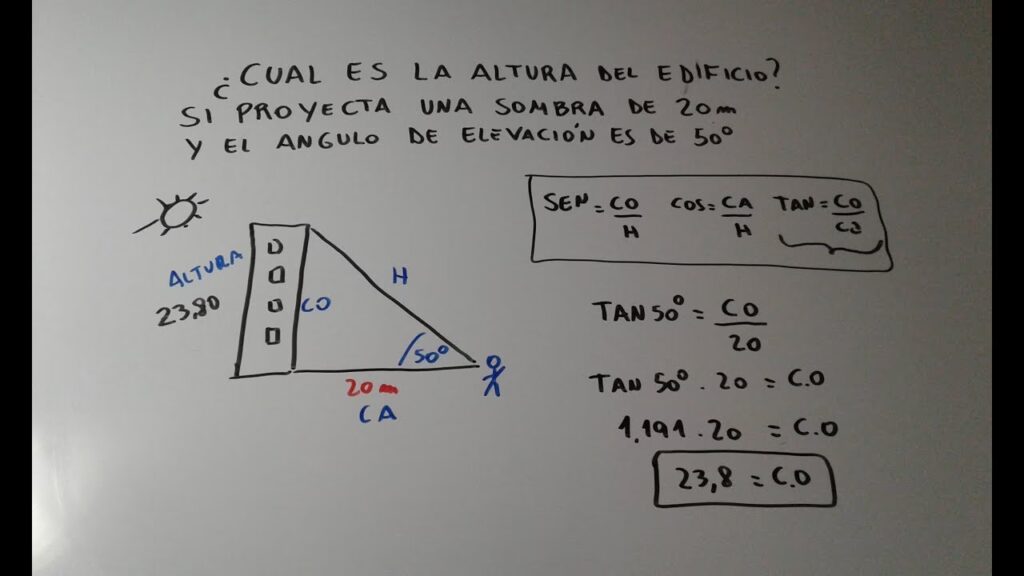 ¿CUAL ES LA ALTURA DEL EDIFICIO?
SI PROYECTA UNA SOMBRA DE 20m
Y EL ANGULO DE ELEVACIÓN ES DE 50°
SEN = CO/H COS = CA/H TAN = CO/CA
ALTURA
23,80
CO
H
50°
20m
CA
TAN 50° = CO/20
TAN 50° . 20 = C.O
1,191 . 20 = C.O
23,8 = C.O